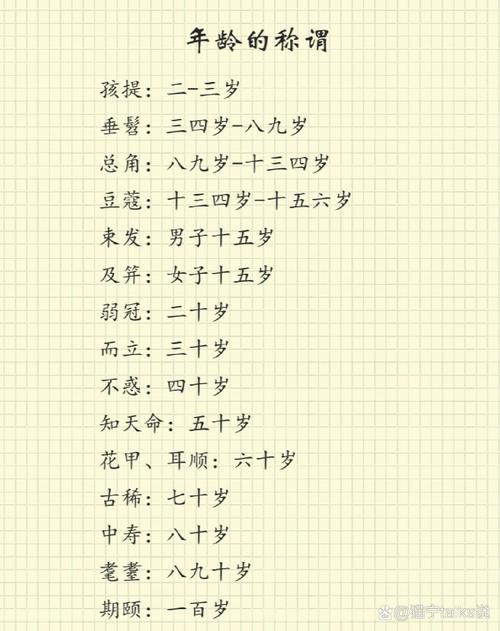 年龄的称谓
孩提：二-三岁
垂髫：三四岁-八九岁
总角：八九岁-十三四岁
豆蔻：十三四岁-十五六岁
束发：男子十五岁
及笄：女子十五岁
弱冠：二十岁
而立：三十岁
不惑：四十岁
知天命：五十岁
花甲、耳顺：六十岁
古稀：七十岁
中寿：八十岁
耄耋：八九十岁
期颐：一百岁